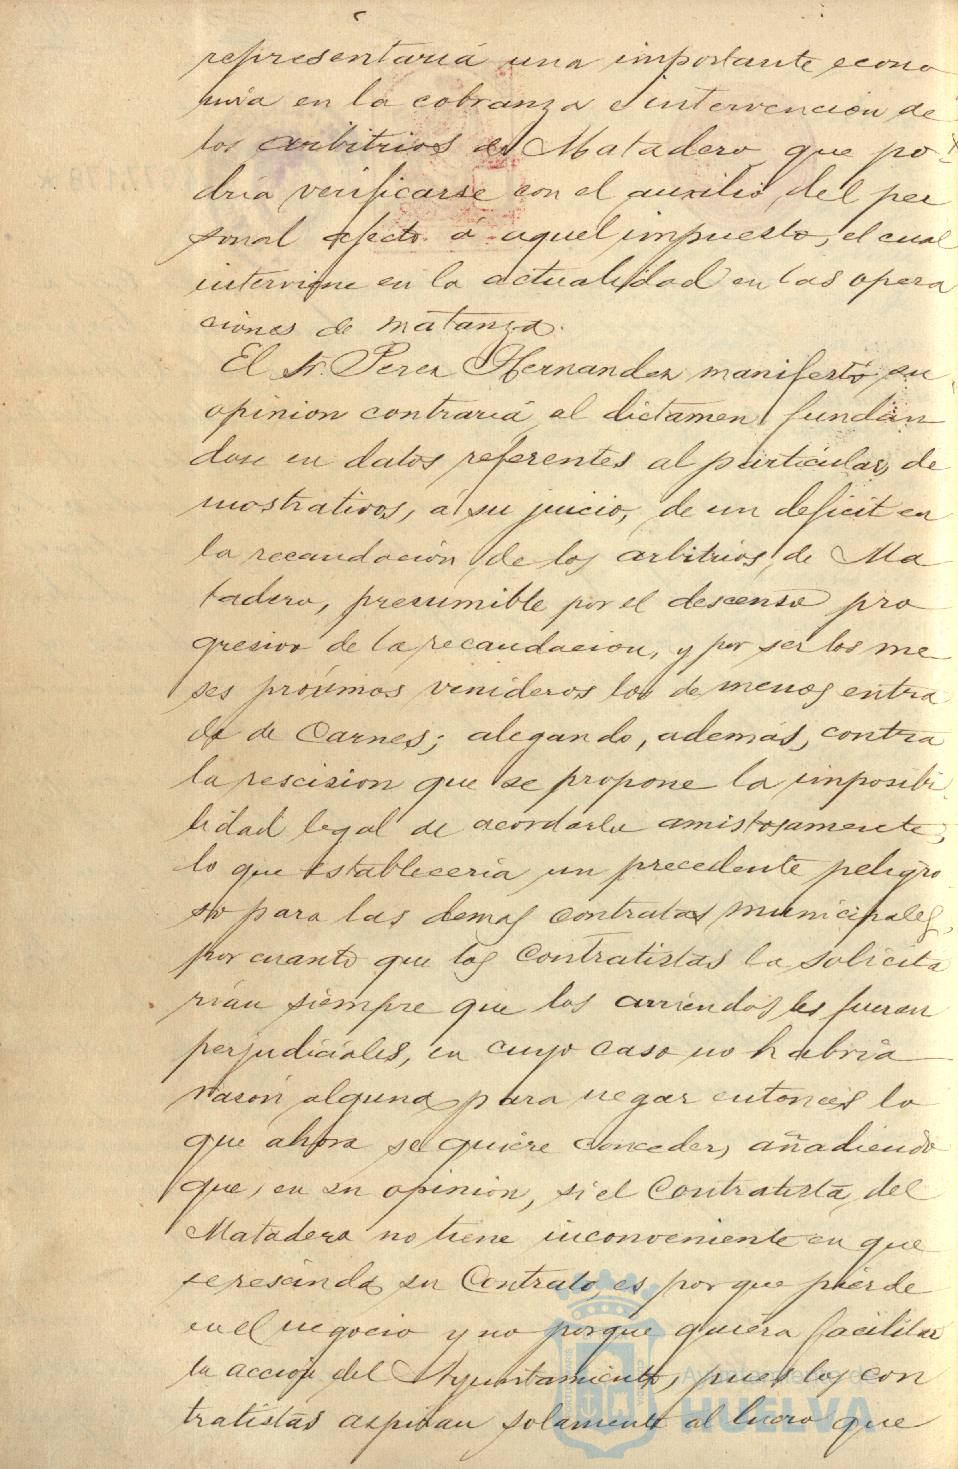 representaría una importante econo
mía en la cobranza e intervención de
los arbitrios de Matadero, que po-
dría verificarse con el auxilio del per
sonal afecto á aquel impuesto, el cual
interviene en la actualidad en las opera
ciones de matanza.
El Sr. Perez Hernandez manifestó su
opinion contraria al dictamen fundán
dose en datos referentes al particular, de
mostrativos, á su juicio, de un deficit en
la recaudación de los arbitrios de Ma
tadero, presumible por el descenso pro
gresivo de la recaudacion, y por ser los me
ses próximos venideros los de menos entra
da de Carnes; alegando, además, contra
la rescision que se propone la imposibi-
lidad legal de acordarla amistosamente,
lo que establecería un precedente peligro
so para las demas contratas municipales,
por cuanto que los Contratistas la solicita
rían siempre que los arriendos les fueran
perjudiciales, en cuyo caso no habria
razón alguna para negar entonces lo
que ahora se quiere conceder, añadiendo
que, en su opinion, si el Contratista del
Matadero no tiene inconveniente en que
se rescinda su Contrato, es por que pierde
en el negocio y no porque quiera facilitar
la acción del Ayuntamiento, pues los con
tratistas aspiran solamente al lucro que
Ayuntamiento de
HUELVA